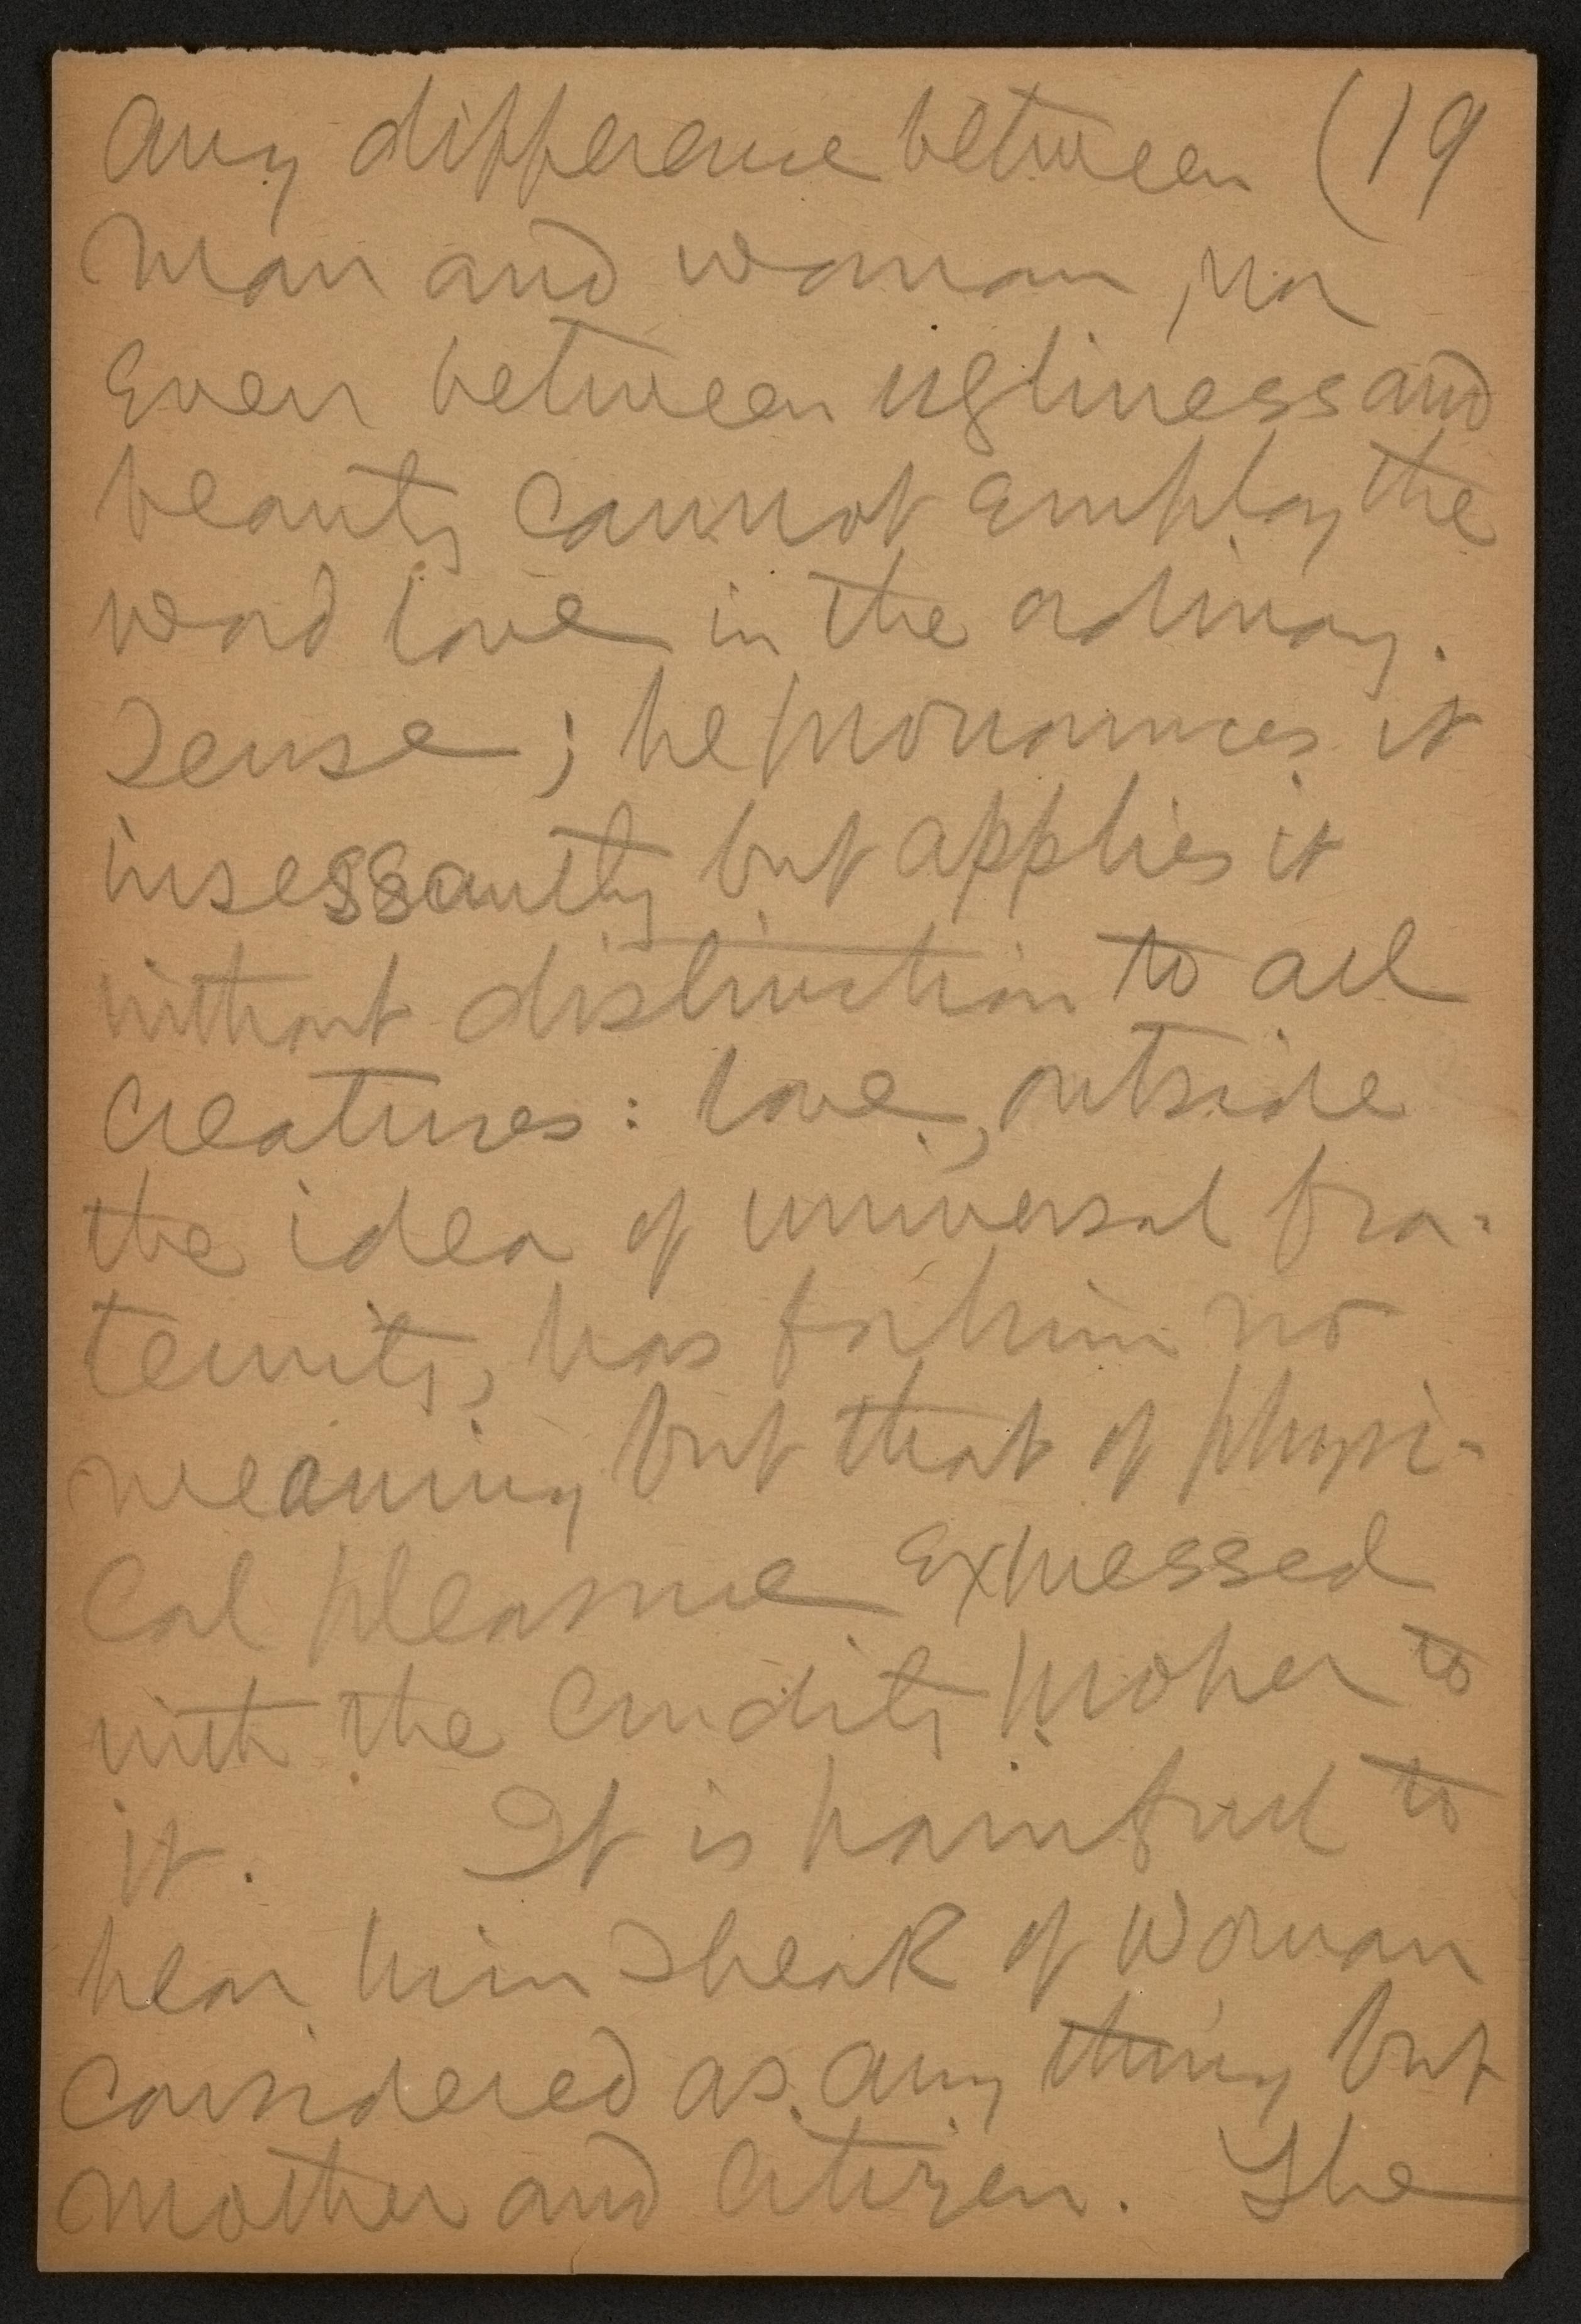 any difference between (19
man and woman, nor
even between ugliness and
beauty cannot employ the
word love in the ordinary.
sense; he pronounces it
insessantly but applies it
without distinction to all
creatures: love, outside
the idea of universal fra-
ternity, has for him no
meaning but that of physi-
cal pleasure expressed
with the crudity proper to
it. It is painful to
hear him speak of woman
considered as any thing but
mother and citizen. The